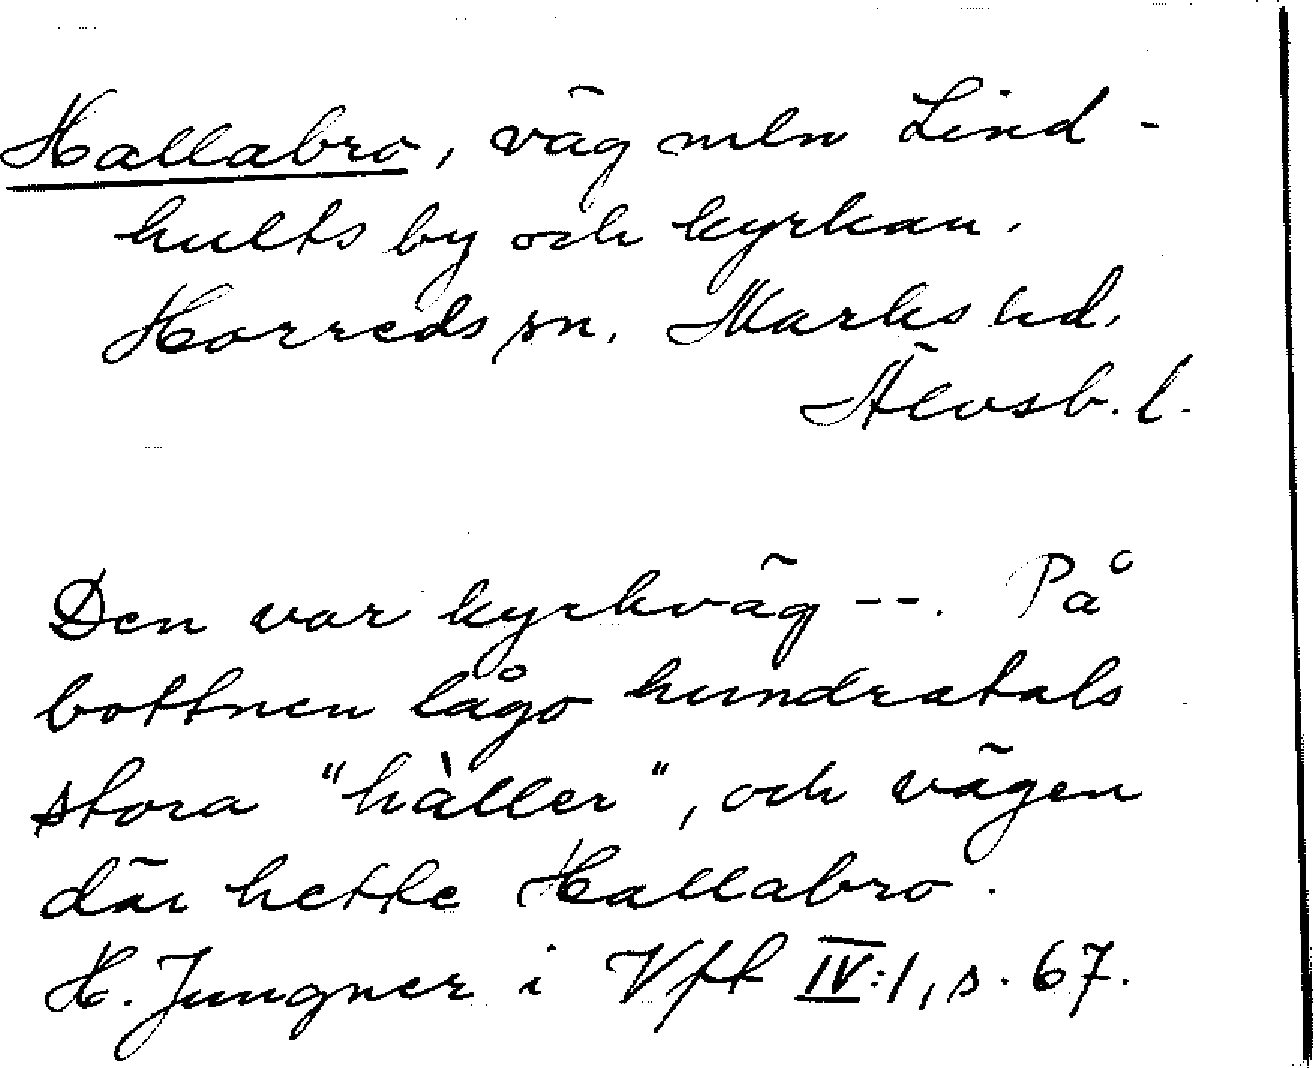 Hallabro, väg mln Lind-
hults by och kyrkan.
Horreds sn. Marks hd.
Älvsb. l.
Den var kyrkväg --. På
bottnen lågo hundratals
stora "hàller", och vägen
där hette Hallabro.
H. Jungner i Vft IV:1, s. 67.